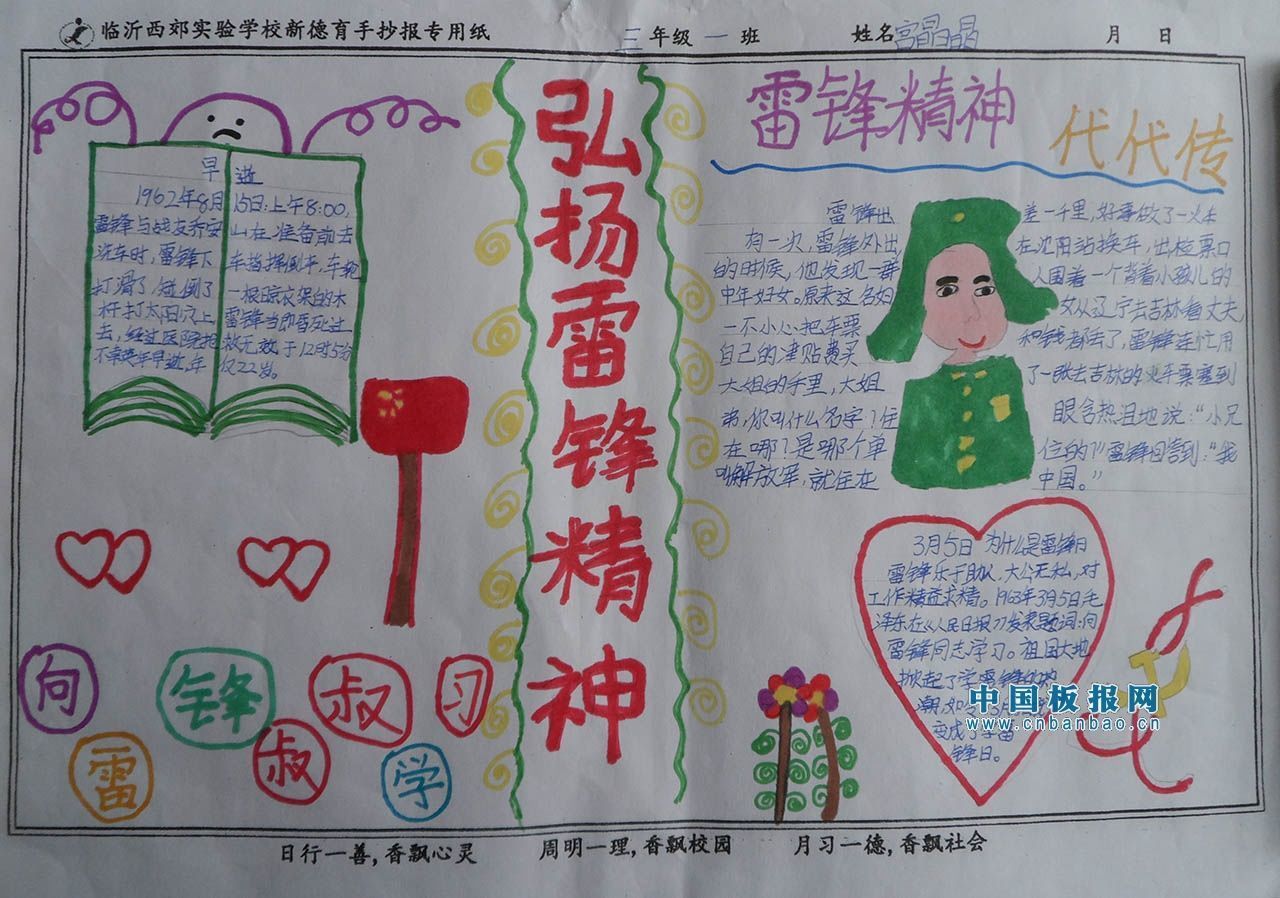 临沂西郊实验学校新德育手抄报专用纸 三年级一班 姓名宫晶晶 月 日
早逝
1962年8月15日:上午8:00,
雷锋与战友乔安山在,准备前去
洗车时,雷锋下车指挥倒车,车轮
打滑了,碰倒了一根晾衣架的木
杆打太阳穴上雷锋当即昏死过
去,经过医院抢救无效于12时5分
不幸英年早逝,年仅22岁。
向
雷
锋
叔
叔
学
习
弘
扬
雷
锋
精
神
雷锋精神
代代传
雷锋出差一千里,好事做了一火车
有一次,雷锋外出在沈阳站换车,出检票口
的时候,他发现一群人围着一个背着小孩儿的
中年妇女。原来这名妇女从辽宁去吉林看丈夫
一不小心把车票和钱都丢了,雷锋连忙用
自己的津贴费买了一张去吉林的火车票塞到
大姐的手里,大姐眼含热泪地说:“小兄
弟,你叫什么名字?住在哪?是哪个单位的?”雷锋回答到:“我
叫解放军,就住在中国。”
3月5日为什么是雷锋日
雷锋乐于助人,大公无私,对
工作精益求精。1963年3月5日毛
泽东在《人民日报》发表题词:向
雷锋同志学习。祖国大地
掀起了学雷锋的
潮,如今3月
变成了学雷
锋日。
中国板报网
www.cnbanbao.cn
日行一善,香飘心灵 周明一理,香飘校园 月习一德,香飘社会